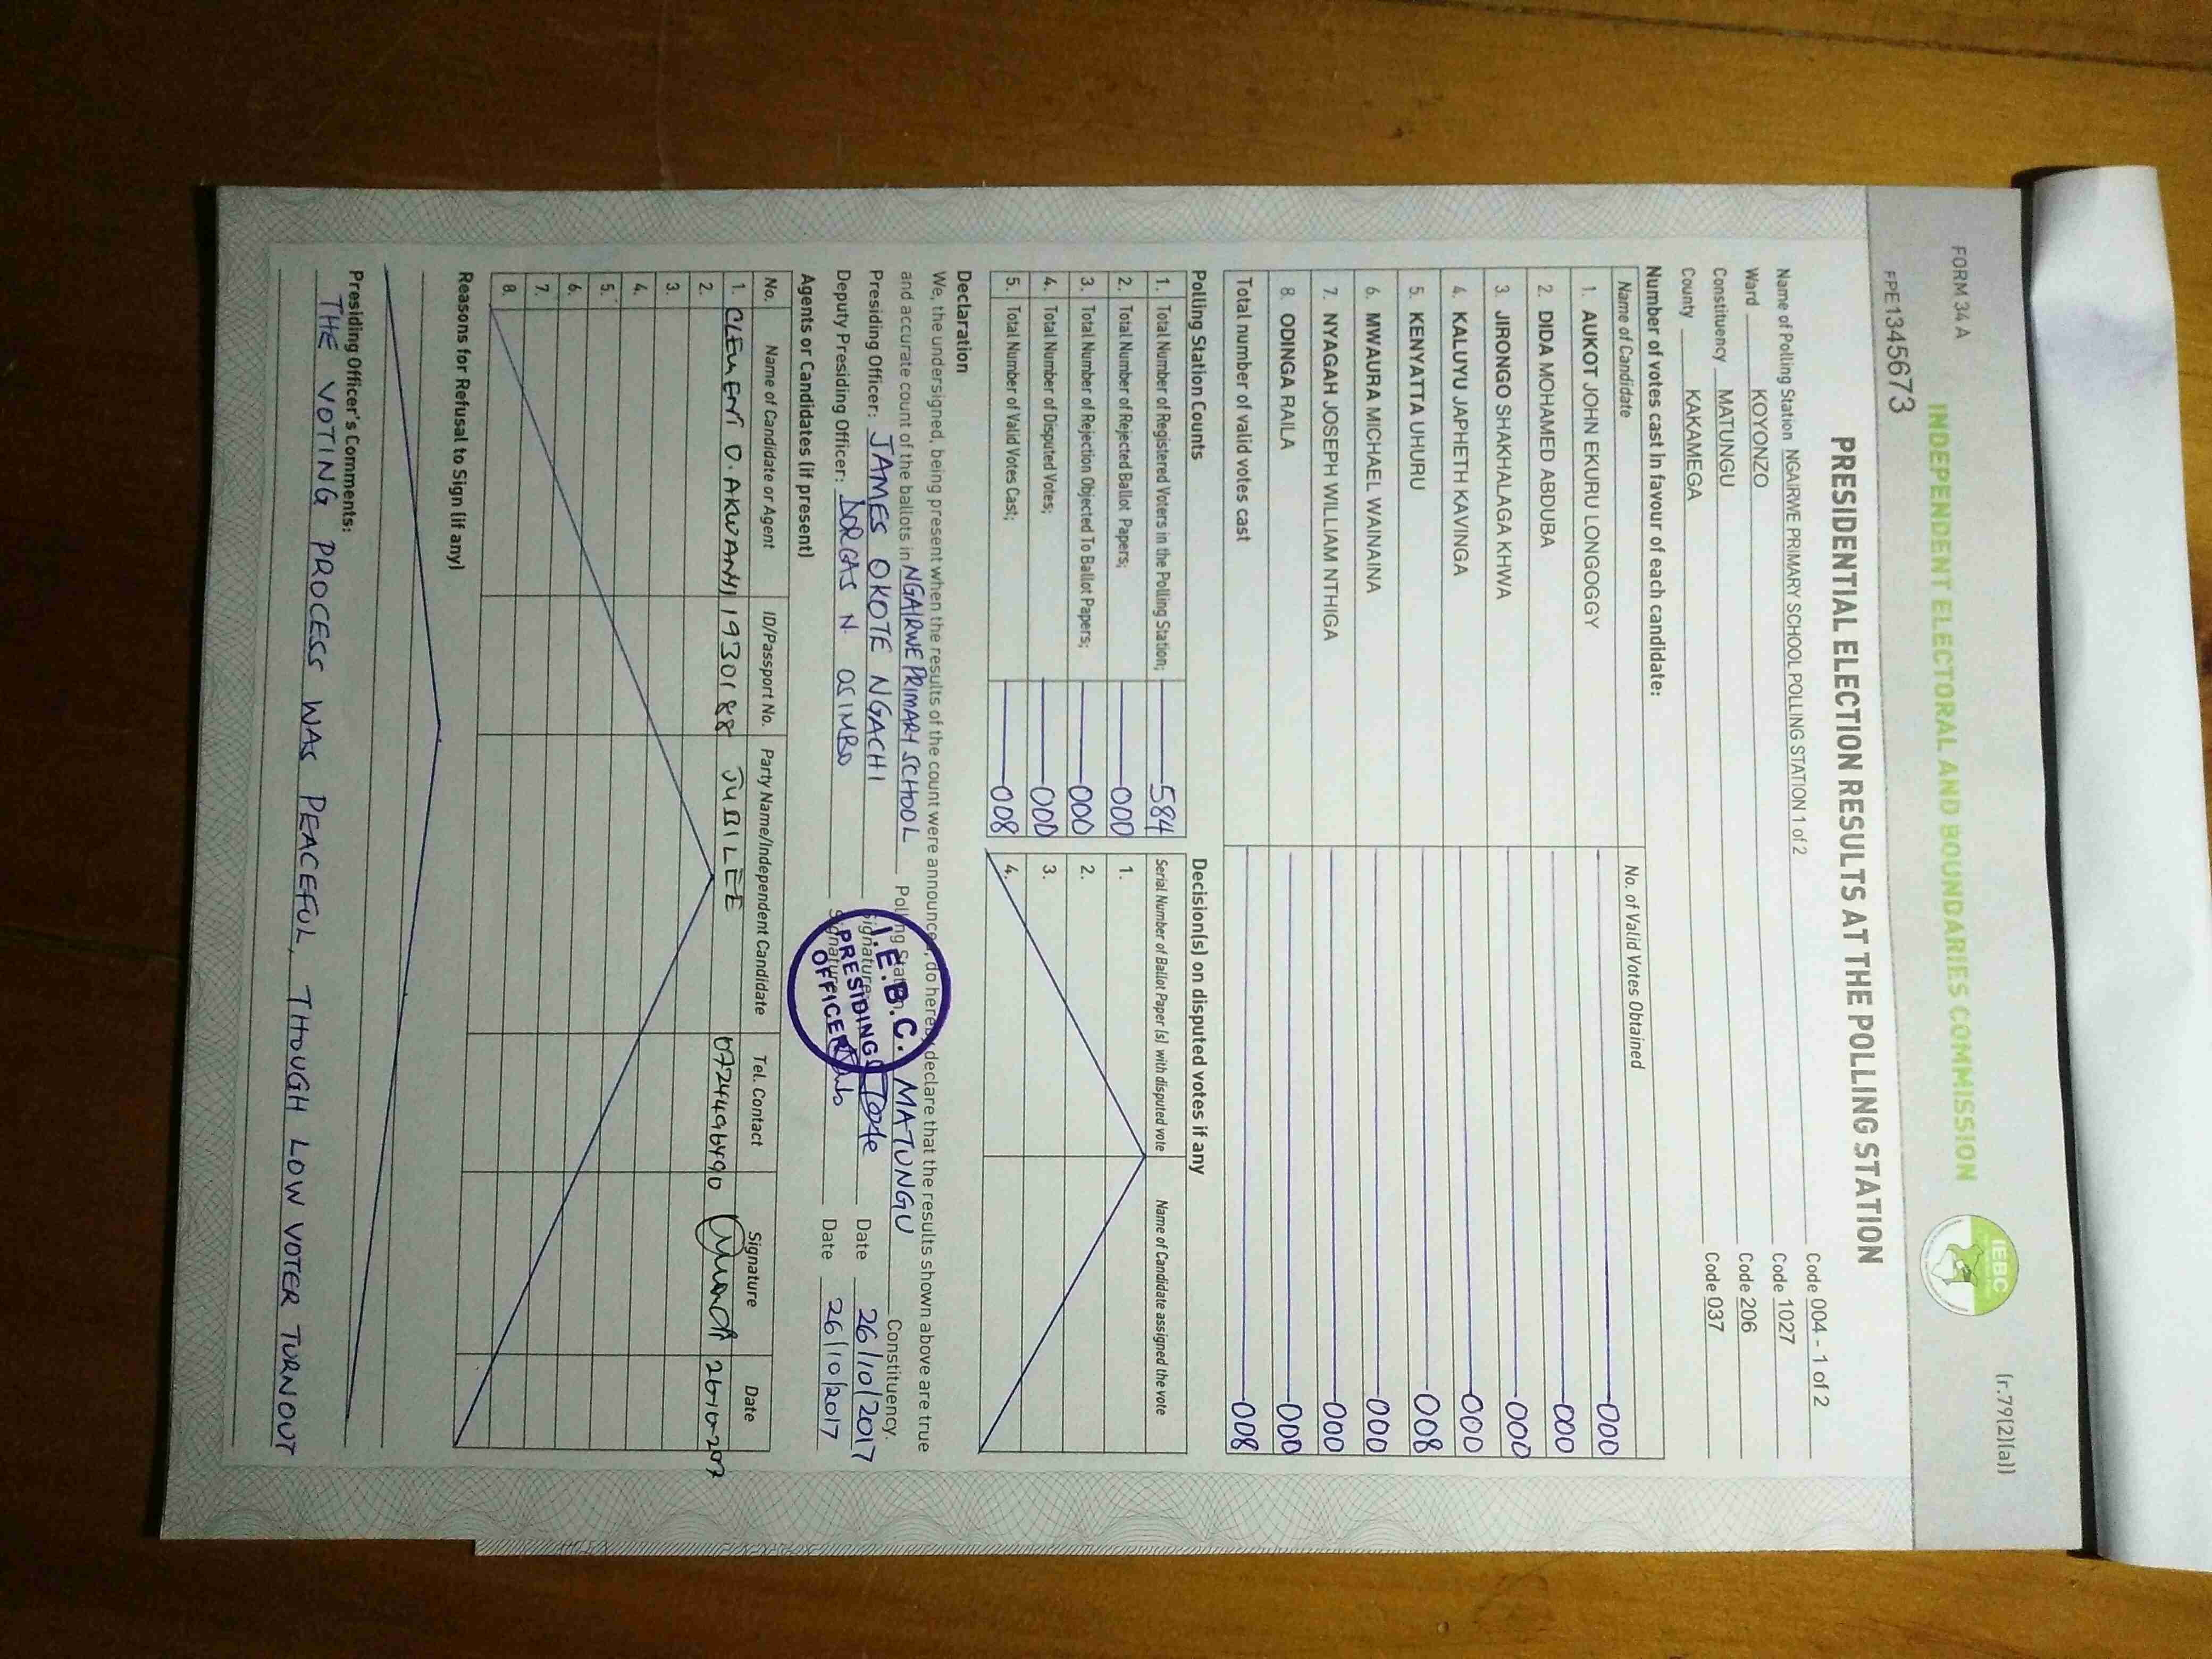 FORM 34 A
(r.79(2)(a))
INDEPENDENT ELECTORAL AND BOUNDARIES COMMISSION
IEBC
FPE1345673
PRESIDENTIAL ELECTION RESULTS AT THE POLLING STATION
Name of Polling Station NGAIRWE PRIMARY SCHOOL POLLING STATION 1 of 2 Code 004 - 1 of 2
Ward KOYONZO Code 1027
Constituency MATUNGU Code 206
County KAKAMEGA Code 037
Number of votes cast in favour of each candidate:
Name of Candidate No. of Valid Votes Obtained
1. AUKOT JOHN EKURU LONGOGGY 000
2. DIDA MOHAMED ABDUBA 000
3. JIRONGO SHAKHALAGA KHWA 000
4. KALUYU JAPHETH KAVINGA 000
5. KENYATTA UHURU 008
6. MWAURA MICHAEL WAINAINA 000
7. NYAGAH JOSEPH WILLIAM NTHIGA 000
8. ODINGA RAILA 000
Total number of valid votes cast 008
Polling Station Counts
1. Total Number of Registered Voters in the Polling Station; 584
2. Total Number of Rejected Ballot Papers; 000
3. Total Number of Rejection Objected To Ballot Papers; 000
4. Total Number of Disputed Votes; 000
5. Total Number of Valid Votes Cast; 008
Decision(s) on disputed votes if any
Serial Number of Ballot Paper (s) with disputed vote Name of Candidate assigned the vote
1.
2.
3.
4.
Declaration
We, the undersigned, being present when the results of the count were announced, do hereby declare that the results shown above are true
and accurate count of the ballots in NGAIRWE PRIMARY SCHOOL Polling Station MATUNGU Constituency.
Presiding Officer: JAMES OKOTE NGACHI Signature Date 26/10/2017
Deputy Presiding Officer: DORCAS N. OSIMBO Signature Date 26/10/2017
I.E.B.C.
PRESIDING
OFFICER
Agents or Candidates (if present)
No. Name of Candidate or Agent ID/Passport No. Party Name/Independent Candidate Tel. Contact Signature Date
1. CLEMENT O. 19301 88 JUBILEE 0724496490 26-10-2017
2.
3.
4.
5.
6.
7.
8.
Reasons for Refusal to Sign (if any)
Presiding Officer's Comments:
THE VOTING PROCESS WAS PEACEFUL, THOUGH LOW VOTER TURNOUT